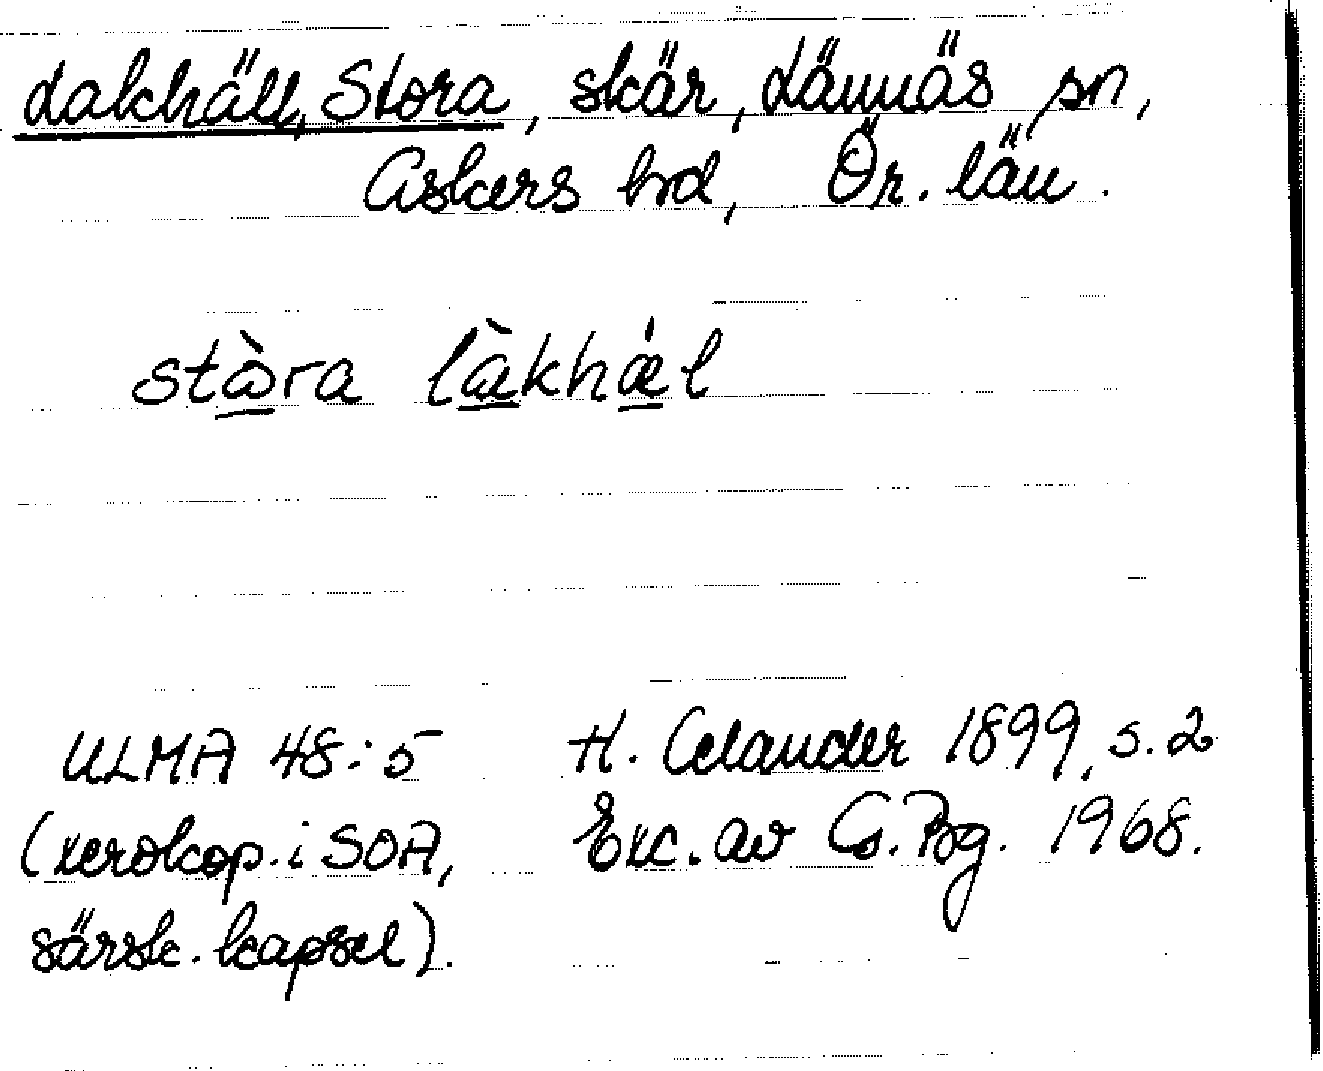 Lakhäll, Stora, skär, Lännäs sn,
Askers hrd, Ör. län.
stòra làkhǽl
ULMA 48:5 H. Celander 1899, s. 2
(xerokop. i SOA, Exc. av G. Bg. 1968.
särsk. kapsel).